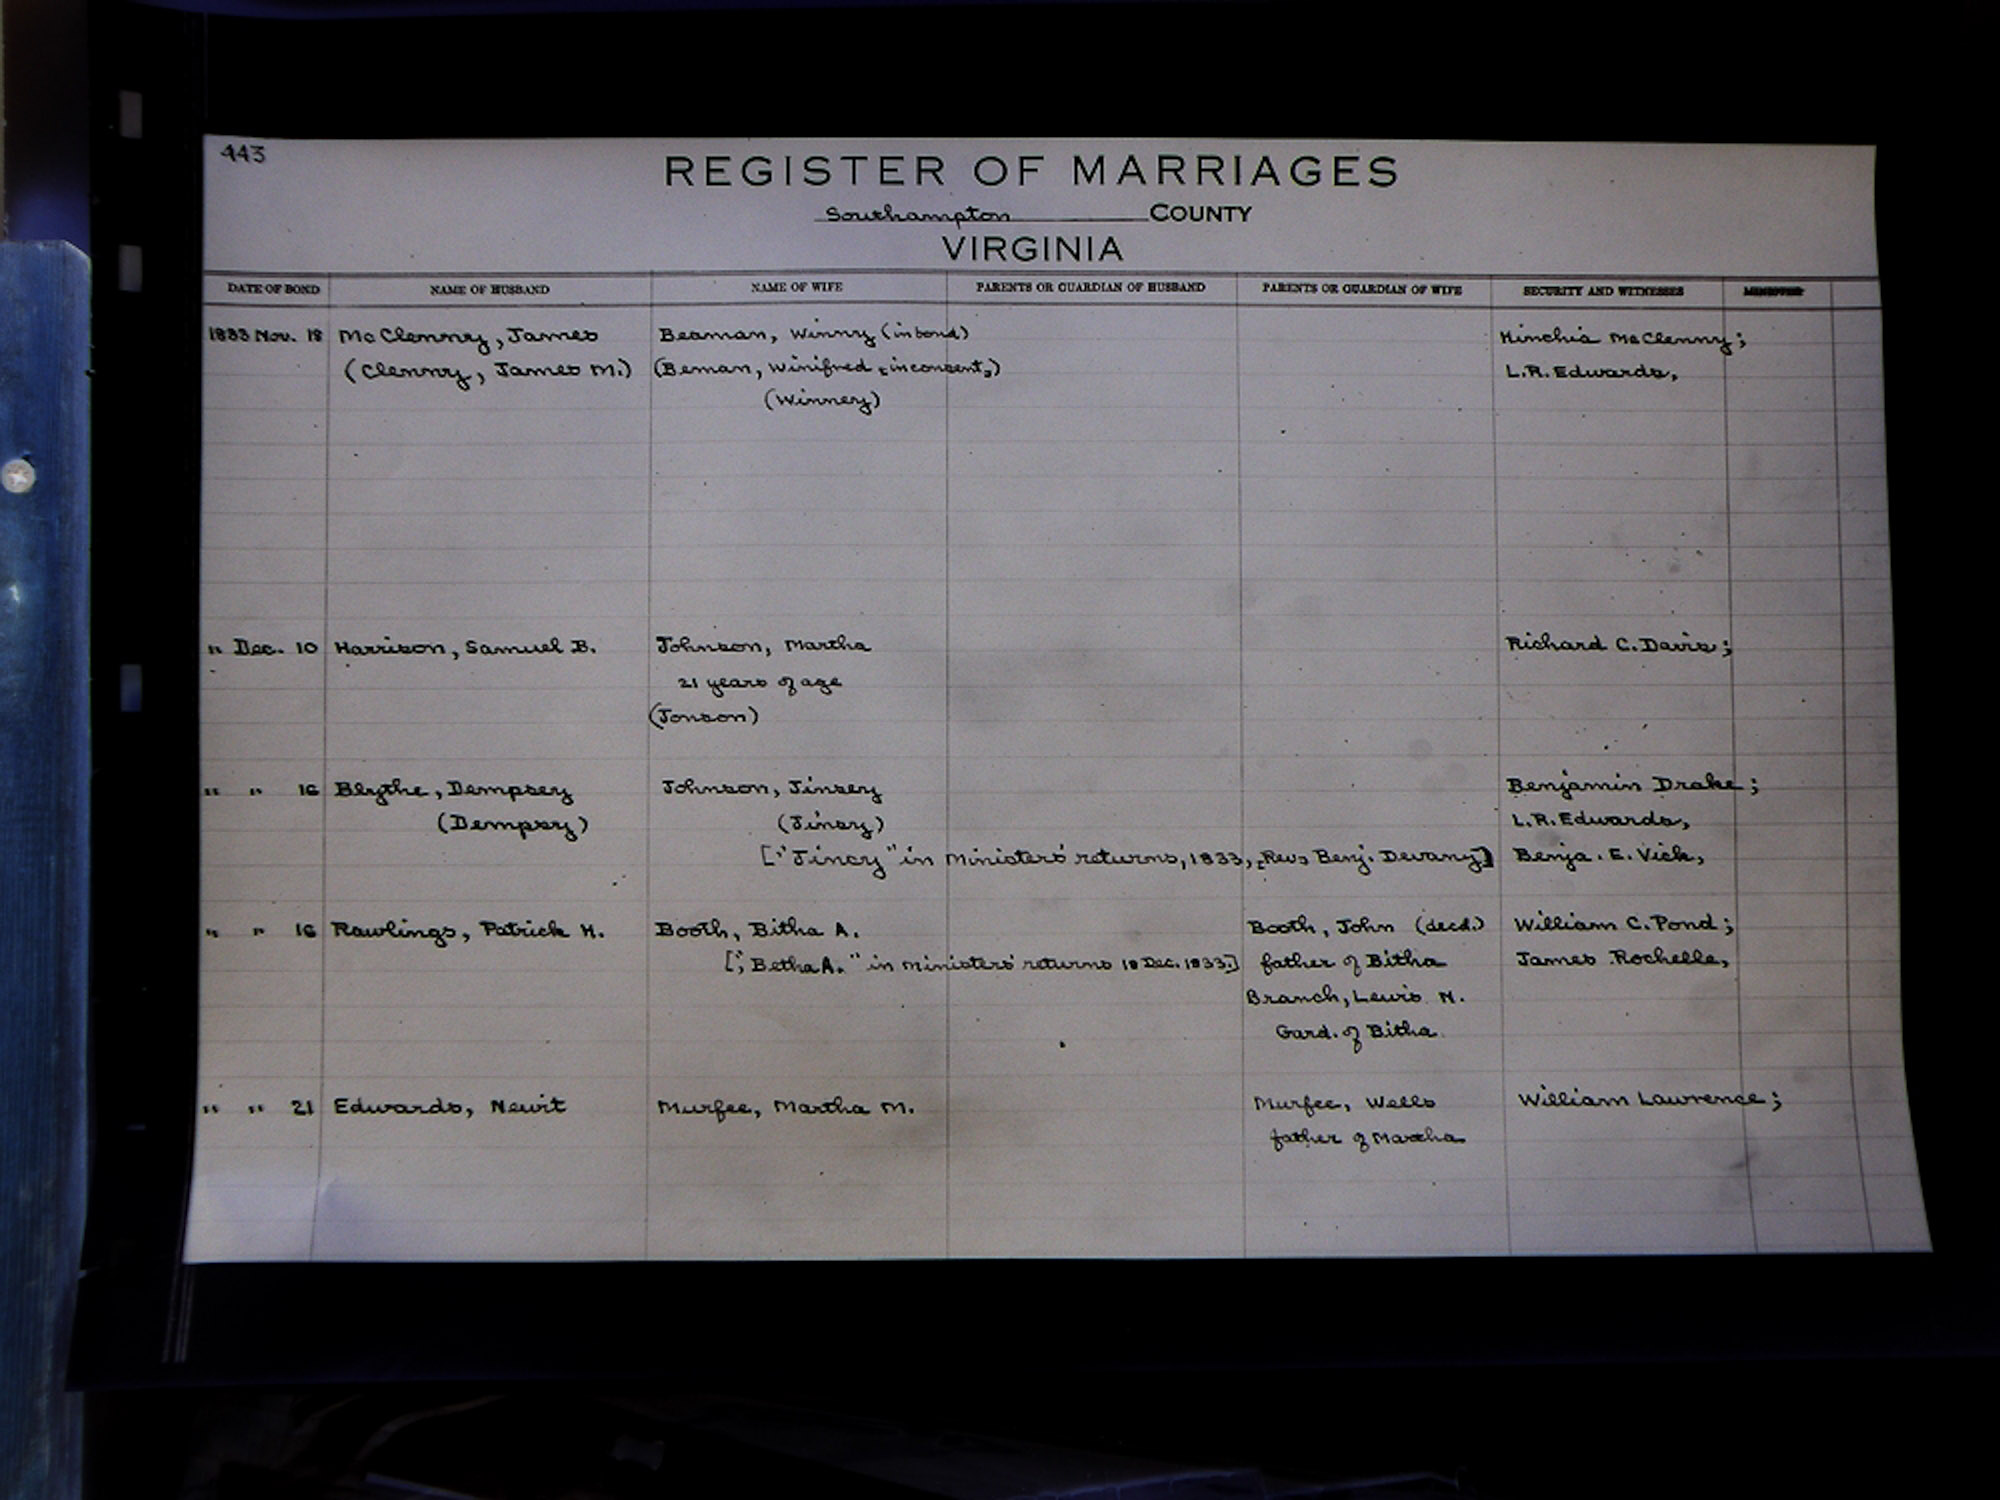 443
REGISTER OF MARRIAGES
Southampton COUNTY
VIRGINIA
DATE OF BOND NAME OF HUSBAND NAME OF WIFE PARENTS OR GUARDIAN OF HUSBAND PARENTS OR GUARDIAN OF WIFE SECURITY AND WITNESSES
1833 Nov. 18 McClenny, James Beaman, Winny (in bond) Hinchia McClenny;
(Clenny, James M.) (Beman, Winifred, in consent,) L.R. Edwards,
(Winney)
" Dec. 10 Harrison, Samuel B. Johnson, Martha Richard C. Davis;
21 years of age
(Jonson)
" " 16 Blythe, Dempsey Johnson, Jinsey Benjamin Drake;
(Dempsy) (Jinsy) L.R. Edwards,
["Jincy" in Ministers' returns, 1833, Rev. Benj. Devany] Benja. E. Vick,
" " 16 Rawlings, Patrick H. Booth, Bitha A. Booth, John (decd.) William C. Pond;
["Betha A." in Ministers' returns 18 Dec. 1833.] father of Bitha James Rochelle,
Branch, Lewis N.
Gard. of Bitha
" " 21 Edwards, Newit Murfee, Martha M. Murfee, Wells William Lawrence;
father of Martha